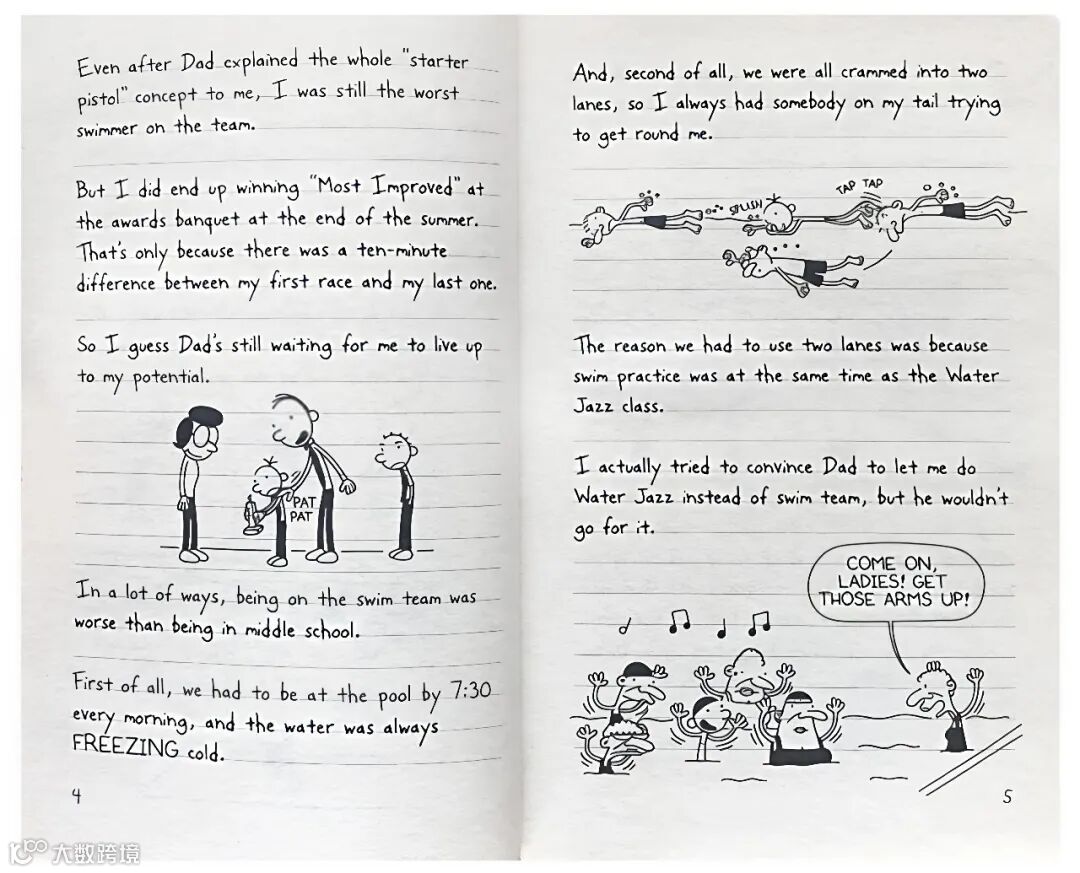 Even after Dad explained the whole "starter
pistol" concept to me, I was still the worst
swimmer on the team.
But I did end up winning "Most Improved" at
the awards banquet at the end of the summer.
That's only because there was a ten-minute
difference between my first race and my last one.
So I guess Dad's still waiting for me to live up
to my potential.
PAT
PAT
In a lot of ways, being on the swim team was
worse than being in middle school.
First of all, we had to be at the pool by 7:30
every morning, and the water was always
FREEZING cold.
4
And, second of all, we were all crammed into two
lanes, so I always had somebody on my tail trying
to get round me.
SPLISH
TAP TAP
The reason we had to use two lanes was because
swim practice was at the same time as the Water
Jazz class.
I actually tried to convince Dad to let me do
Water Jazz instead of swim team, but he wouldn't
go for it.
COME ON,
LADIES! GET
THOSE ARMS UP!
5
大数跨境